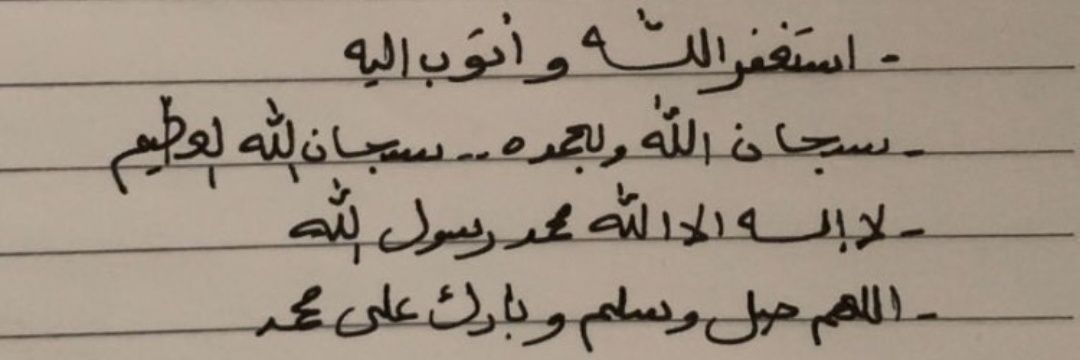 - استغفر الله و أتوب اليه
- سبحان الله وبحمده .. سبحان الله العظيم
- لا إله الا الله محمد رسول الله
- اللهم صل وسلم و بارك على محمد